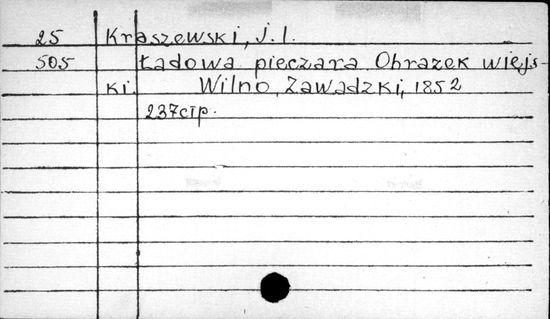 25 Kraszewski, J. I.
505 Ładowa pieczara Obrazek wiejs-
ki. Wilno, Zawadzki, 1852
237 стр.